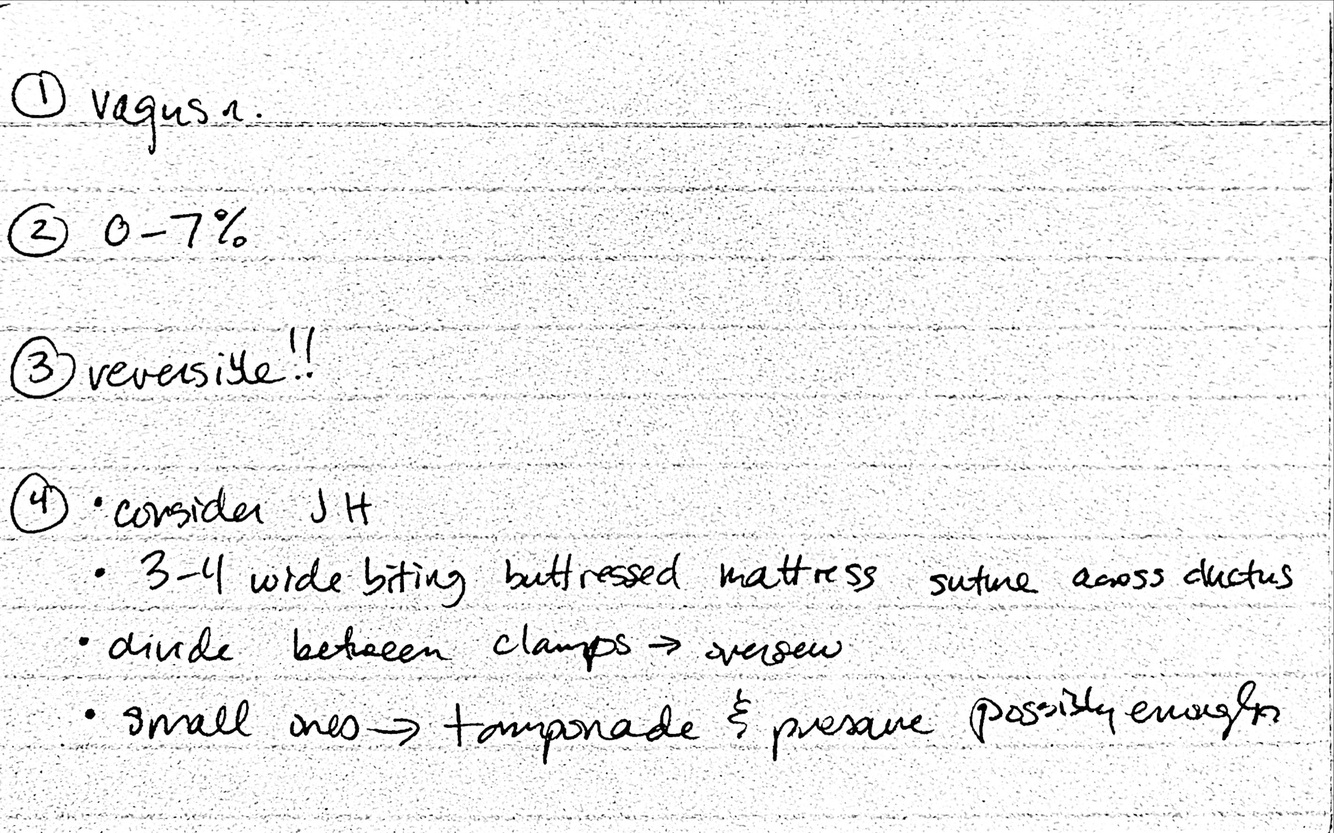 ① vagus n.
② 0-7%
③ reversible!!
④ • consider JH
• 3-4 wide biting buttressed mattress suture across ductus
• divide between clamps → oversew
• small ones → tamponade & pressure possibly enough